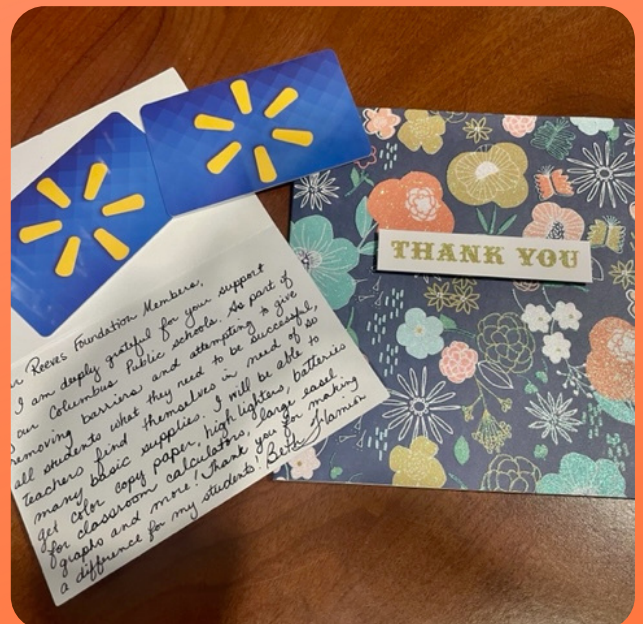 Reeves Foundation Members,
I am deeply grateful for your support
our Columbus Public schools. As part of
removing barriers and attempting to give
all students what they need to be successful,
teachers find themselves in need of so
many basic supplies. I will be able to
get color copy paper, highlighters, batteries
for classroom calculators, large easel
graphs and more! Thank you for making
a difference for my students! Beth
THANK YOU